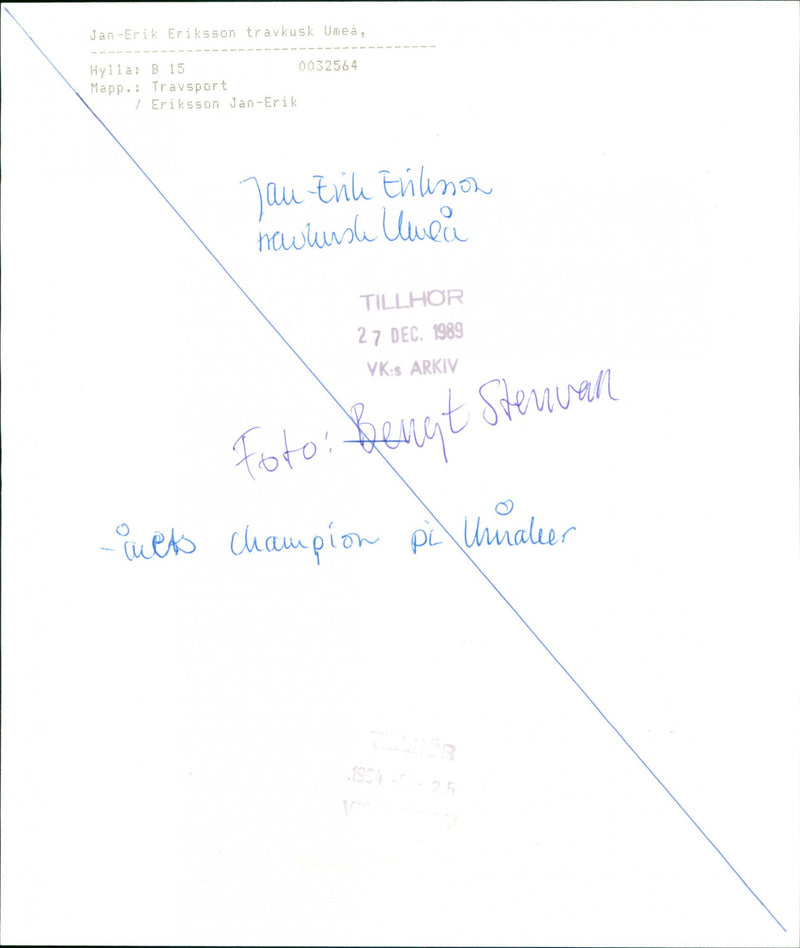 Jan-Erik Eriksson travkusk Umeå,
------------------------------------
Hylla: B 15 0032564
Mapp.: Travsport
/ Eriksson Jan-Erik
Jan-Erik Eriksson
travkusk Umeå
TILLHÖR
27 DEC. 1989
VK:s ARKIV
Foto: Bengt Stenvall
- årets champion på Umåker
TILLHÖR
25